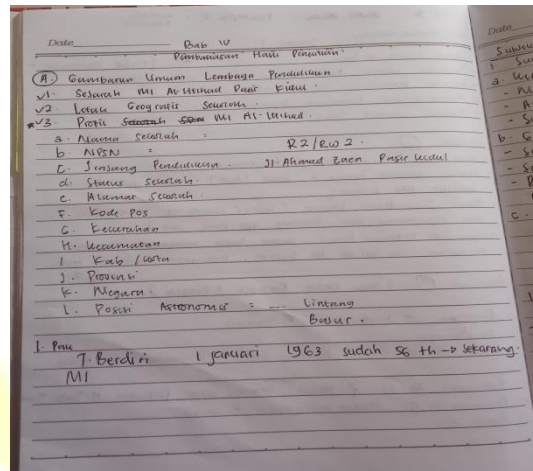 Date
Bab IV
Pembahasan Hasil Penelitian
A. Gambaran Umum Lembaga Pendidikan
1. Sejarah MI Al-Ittihad Pasir Kidul.
2. Letak Geografis Sekolah.
3. Profil MI Al-Ittihad.
a. Nama Sekolah :
b. NPSN : R2/RW 2.
c. Jenjang Pendidikan. Jl Ahmad Zaen Pasir Kidul
d. Status Sekolah.
e. Alamat Sekolah
F. Kode Pos
G. Kelurahan
H. Kecamatan
I. Kab / Kota
J. Provinsi
K. Negara.
L. Posisi Astronomis = ... Lintang
Bujur.
T. Berdiri 1 januari 1963 sudah 56 th → sekarang.
MI
Date